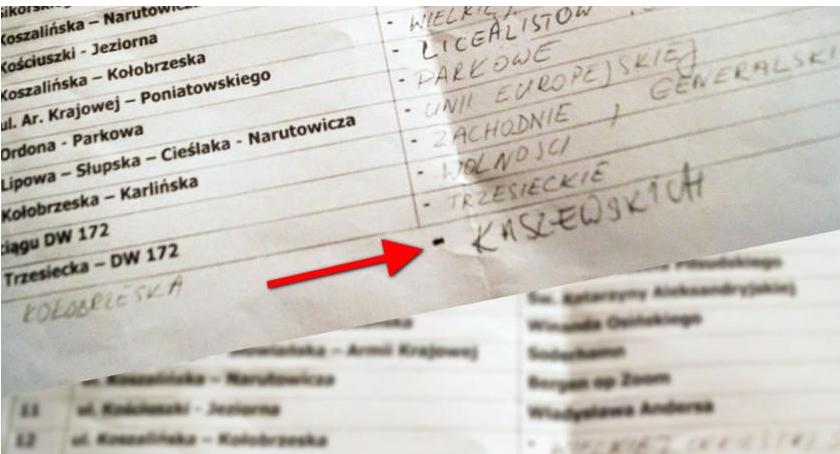 Koszalińska – Narutowicza
- WIELKIEJ
Kościuszki - Jeziorna
- LICEALISTÓW
Koszalińska – Kołobrzeska
- PARKOWE
ul. Ar. Krajowej – Poniatowskiego
- UNII EUROPEJSKIEJ
Ordona - Parkowa
- ZACHODNIE / GENERALSKI
Lipowa – Słupska – Cieślaka - Narutowicza
- WOLNOŚCI
Kołobrzeska – Karlińska
- TRZESIECKIE
ciągu DW 172
- KASZEWSKICH
Trzesiecka – DW 172
KOŁOBRZESKA
Piłsudskiego
Św. Katarzyny Aleksandryjskiej
Winanda Osińskiego
– Armii Krajowej
Soderhamn
ul. Koszalińska – Narutowicza
Bergen op Zoom
11 ul. Kościuszki - Jeziorna
Władysława Andersa
12 ul. Koszalińska – Kołobrzeska
- WIELKIEJ ORKIESTRY